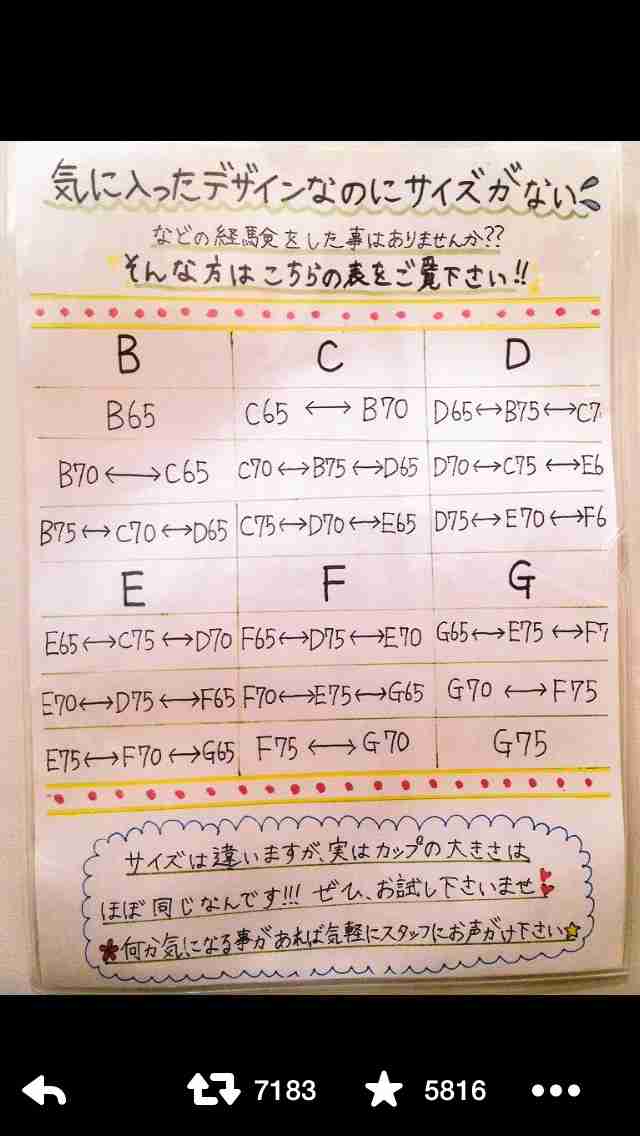 気に入ったデザインなのにサイズがない
などの経験をした事はありませんか??
そんな方はこちらの表をご覧下さい!!
B C D
B65 C65 ⟷ B70 D65⟷B75⟷C7
B70⟷C65 C70⟷B75⟷D65 D70⟷C75⟷E6
B75⟷C70⟷D65 C75⟷D70⟷E65 D75⟷E70⟷F6
E F G
E65⟷C75⟷D70 F65⟷D75⟷E70 G65⟷E75⟷F7
E70⟷D75⟷F65 F70⟷E75⟷G65 G70⟷F75
E75⟷F70⟷G65 F75⟷G70 G75
サイズは違いますが、実はカップの大きさは
ほぼ同じなんです!!! ぜひ、お試し下さいませ
何か気になる事があれば気軽にスタッフにお声がけ下さい
7183 5816